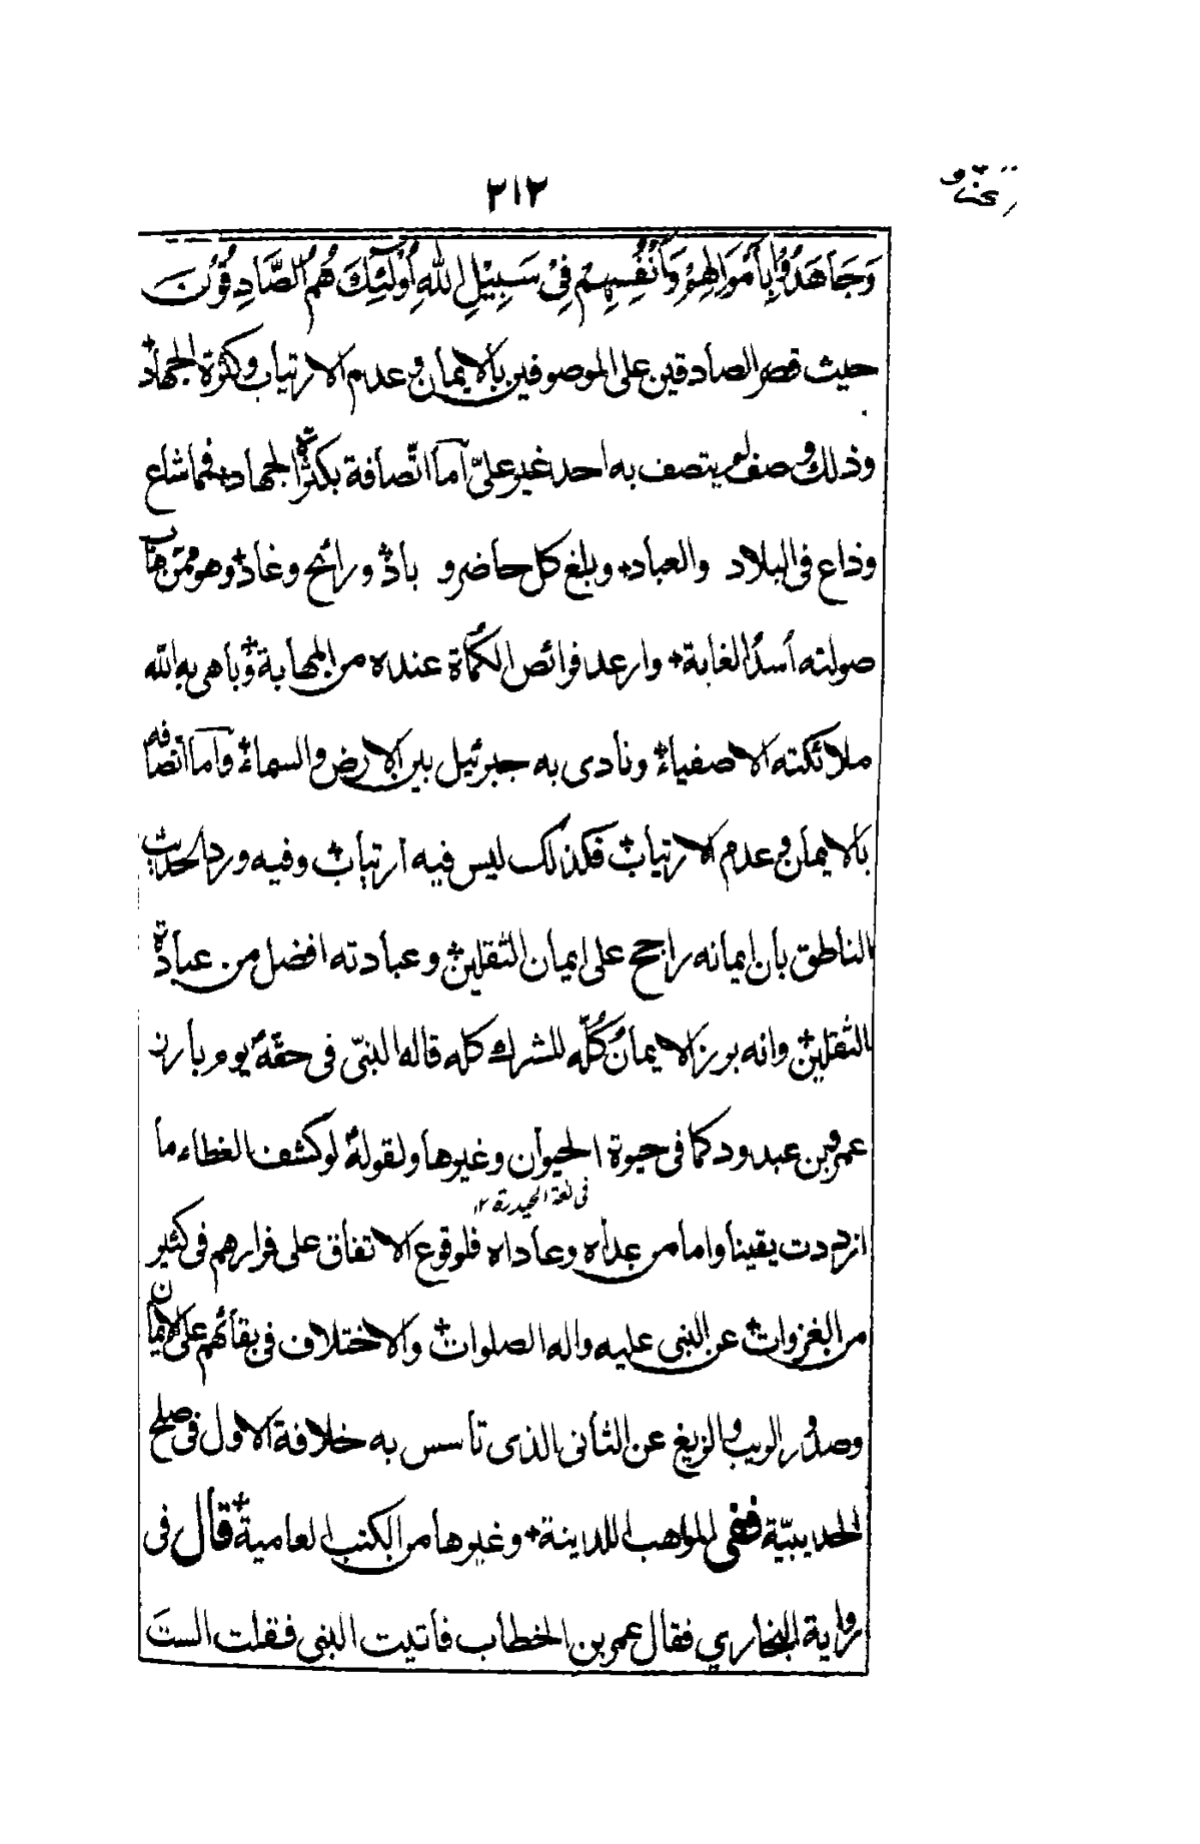 ٢١٢
وَجَاهَدُوْا بِأَمْوَالِهِمْ وَأَنْفُسِهِمْ فِىْ سَبِيْلِ اللّٰهِ اُولٰٓئِكَ هُمُ الصَّادِقُوْنَ
حيث قصر الصادقين على الموصوفين بالايمان وعدم الارتياب وكثرة الجهاد
وذلك وصف لم يتصف به احد غير علىّ اما اتّصافه بكثرة الجهاد فمما شاع
وذاع فى البلاد والعباد وبلغ كل حاضر و باد ورائح وغاد وهو ممن هاب
صولته أسدُ الغابة وارعد فرائص الكُماة عنده من المهابة وباهى به الله
ملائكته الاصفياء ونادى به جبرئيل بين الارض والسماء وامّا اتصافه
بالايمان وعدم الارتياب فكذلك ليس فيه ارتياب وفيه ورد الحديث
الناطق بان ايمانه راجح على ايمان الثقلين وعبادته افضل من عبادة
الثقلين وانه برز الايمان كُلّه للشرك كله قاله النبىّ فى حقه يوم بارز
عمرو بن عبدود كما فى حيوة الحيوان وغيرها ولقوله لو كشف الغطاء ما
فى لغة الحيدرية ١٢
ازددت يقينا واما من عداه وعاداه فلوقوع الاتفاق على فرارهم فى كثير
من الغزوات عن النبى عليه واله الصلوات والاختلاف فى بقائهم على الايمان
وصدور الريب والزيغ عن الثانى الذى تأسس به خلافة الاول فى صلح
الحديبيّة ففى المواهب اللدينة وغيرها من الكتب العامية قال فى
رواية البخاري فقال عمر بن الخطاب فاتيت النبى فقلت الست